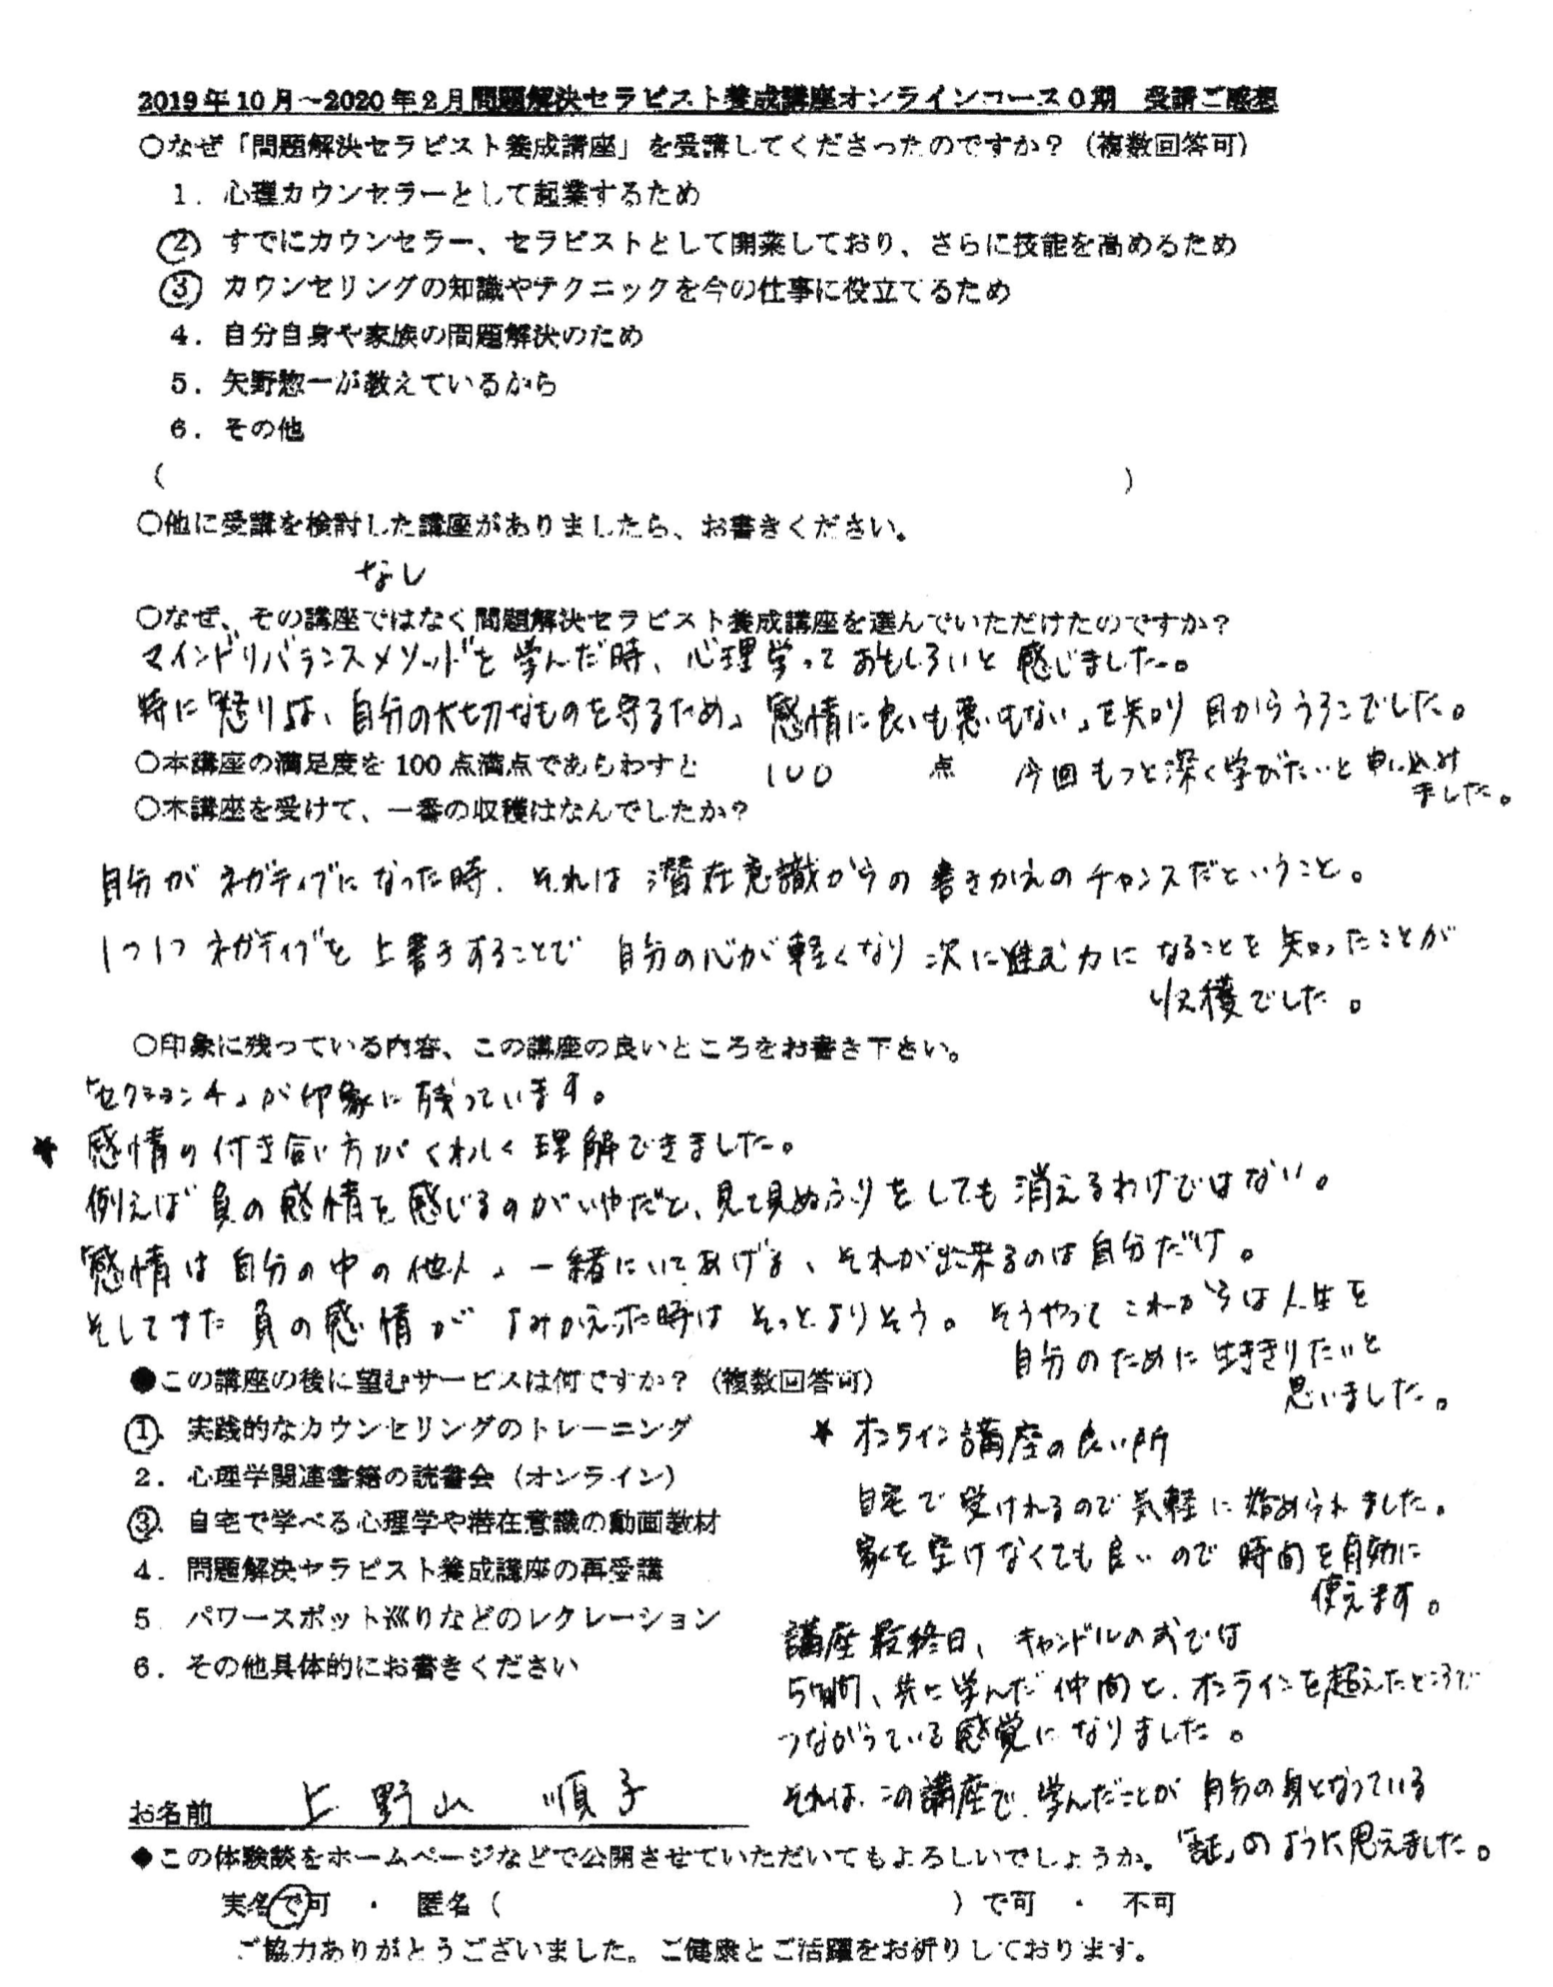 2019年10月～2020年2月問題解決セラピスト養成講座オンラインコース0期　受講ご感想
○なぜ「問題解決セラピスト養成講座」を受講してくださったのですか？（複数回答可）
1．心理カウンセラーとして起業するため
② すでにカウンセラー、セラピストとして開業しており、さらに技能を高めるため
③ カウンセリングの知識やテクニックを今の仕事に役立てるため
4．自分自身や家族の問題解決のため
5．矢野惣一が教えているから
6．その他
（　　　　　　　　　　　　　　　　　　　　　　　）
○他に受講を検討した講座がありましたら、お書きください。
なし
○なぜ、その講座ではなく問題解決セラピスト養成講座を選んでいただけたのですか？
マインドリバランスメソッドを学んだ時、心理学っておもしろいと感じました。
特に「怒り」は、自分の大切なものを守るため」「感情に良いも悪いもない」を知り目からうろこでした。
○本講座の満足度を100点満点であらわすと　100　点　今回もっと深く学びたいと申し込み
ました。
○本講座を受けて、一番の収穫はなんでしたか？
自分がネガティブになった時、それは潜在意識からの書きかえのチャンスだということ。
1つ1つネガティブを上書きすることで自分の心が軽くなり次に進む力になることを知ったことが
収穫でした。
○印象に残っている内容、この講座の良いところをお書き下さい。
「セクション4」が印象に残っています。
★ 感情の付き合い方がくわしく理解できました。
例えば負の感情を感じるのがいやだと、見て見ぬふりをしても消えるわけではない。
「感情は自分の中の他人」一緒にいてあげる、それが出来るのは自分だけ。
そしてまた負の感情がよみがえった時はそっとよりそう。そうやってこれからは人生を
自分のために生ききりたいと
思いました。
●この講座の後に望むサービスは何ですか？（複数回答可）
①．実践的なカウンセリングのトレーニング
2．心理学関連書籍の読書会（オンライン）
③．自宅で学べる心理学や潜在意識の動画教材
4．問題解決セラピスト養成講座の再受講
5．パワースポット巡りなどのレクレーション
6．その他具体的にお書きください
★ オンライン講座の良い所
自宅で受けれるので気軽に始められました。
家を空けなくても良いので時間を有効に
使えます。
講座最終日、キャンドルの式では
5ヶ月間、共に学んだ仲間と、オンラインを超えたところで
つながっている感覚になりました。
それは、この講座で、学んだことが自分の身となっている
「証」のように思えました。
お名前　上野山　順子
◆この体験談をホームページなどで公開させていただいてもよろしいでしょうか。
実名で可　・　匿名（　　　　　　　　　　　）で可　・　不可
ご協力ありがとうございました。ご健康とご活躍をお祈りしております。